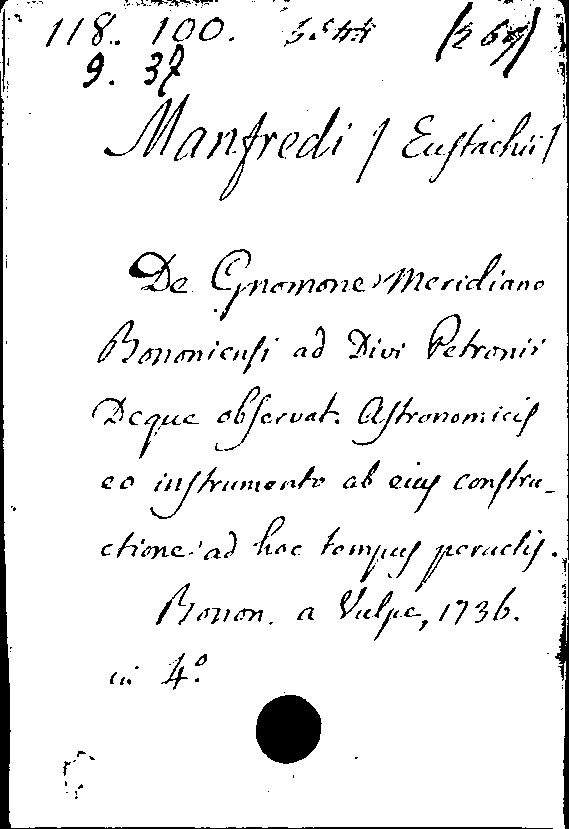 118. 100. 5544 (264)
9. 37
Manfredi / Eustachii /
De Gnomone Meridiano
Bononiensi ad Divi Petronii
Deque observat. Astronomicis
eo instrumento ab eius constru-
ctione ad hoc tempus peractis.
Bonon. a Vulpe, 1736.
in 4º